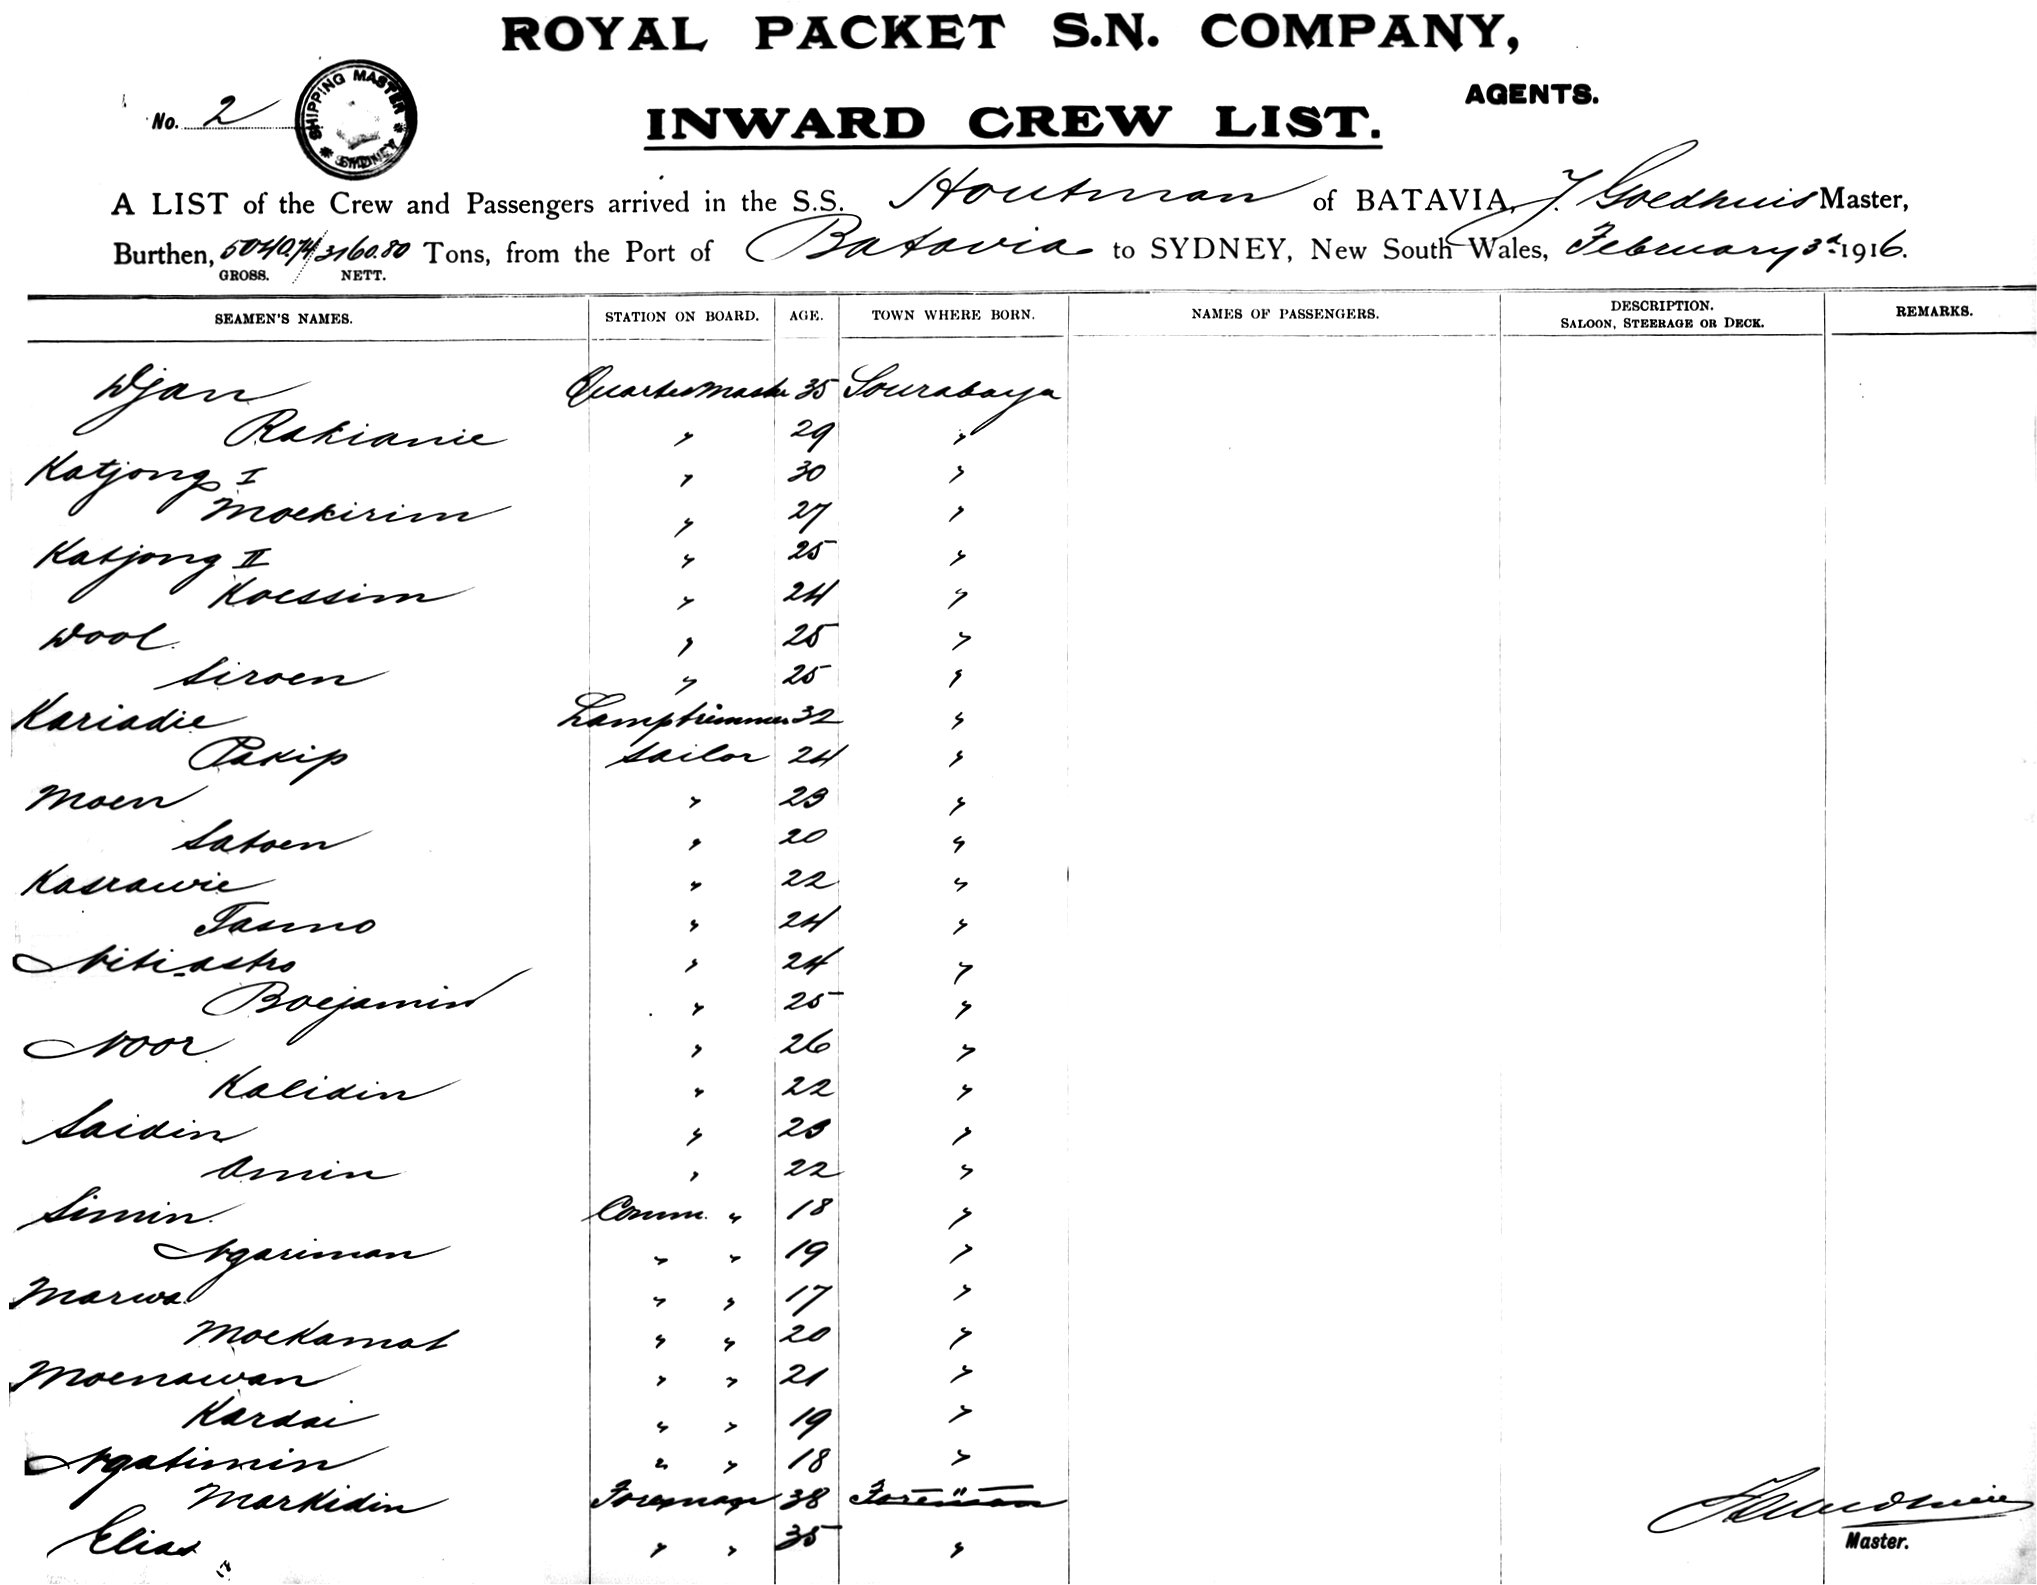 ROYAL PACKET S.N. COMPANY,
AGENTS.
No. 2
SHIPPING MASTER SYDNEY
INWARD CREW LIST.
A LIST of the Crew and Passengers arrived in the S.S. Houtman of BATAVIA, J. Goedhuis Master,
Burthen, 5040.74/3160.80 Tons, from the Port of Batavia to SYDNEY, New South Wales, February 3d 1916.
GROSS. NETT.
SEAMEN'S NAMES. STATION ON BOARD. AGE. TOWN WHERE BORN. NAMES OF PASSENGERS. DESCRIPTION. SALOON, STEERAGE OR DECK. REMARKS.
Djan Quartermaster 35 Sourabaya
Rakianie " 29 "
Katjong I " 30 "
Moekirim " 27 "
Katjong II " 25 "
Koessim " 24 "
Dool " 25 "
Siroen " 25 "
Kariadie Lamptrimmer 32 "
Pakip Sailor 24 "
Moen " 23 "
Satoen " 20 "
Kasrawie " 22 "
Tasmo " 24 "
Nitiastro " 24 "
Boejamin " 25 "
Noor " 26 "
Kalidin " 22 "
Saidin " 23 "
Amin " 22 "
Simin Comm. " 18 "
Ngariman " " 19 "
Marwa " " 17 "
Moekamat " " 20 "
Moenawan " " 21 "
Kardai " " 19 "
Ngatimin " " 18 "
Markidin Foreman 38 Foreman "
Elias " " 35 "
Master.